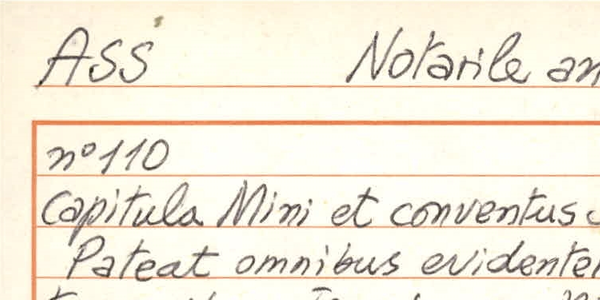 ASS Notarile an
n° 110
Capitula Mini et conventus
Pateat omnibus evidenter